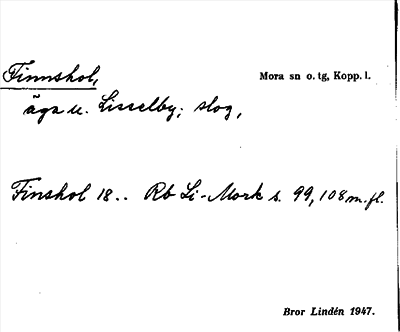 Finnshol,
Mora sn o. tg, Kopp. l.
äga u. Lisselby; slog,
Finshol 18.. Rb Li-Mork s. 99, 108 m. fl.
Bror Lindén 1947.